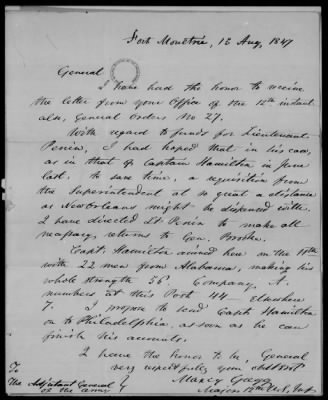 Fort Moultrie, 18 Aug, 1847
General
I have had the honor to receive
the letter from your Office of the 12th instant
also, General Orders No 27.
With regard to funds for Lieutenant
I had hoped that in his case,
as in that of Captain Hamilton in June
last. to save time, a requisition from
the Superintendent at so great a distance
as New Orleans might be dispensed with.
I have directed Lt to make all
necessary returns to Gen. Brooke.
Capt. Hamilton arrived here on the
with 22 men from Alabama, making his
whole strength 56 Company, A.
numbers at this Post 44 Elsewhere
7. I propose to send Capt. Hamilton
on to Philadelphia, as soon as he can
finish his accounts.
I have the honor to be, General
very respectfully, your obdt Svt
Maxcy Gregg
Major 12th U.S. Inf.
To
The Adjutant General
of the Army